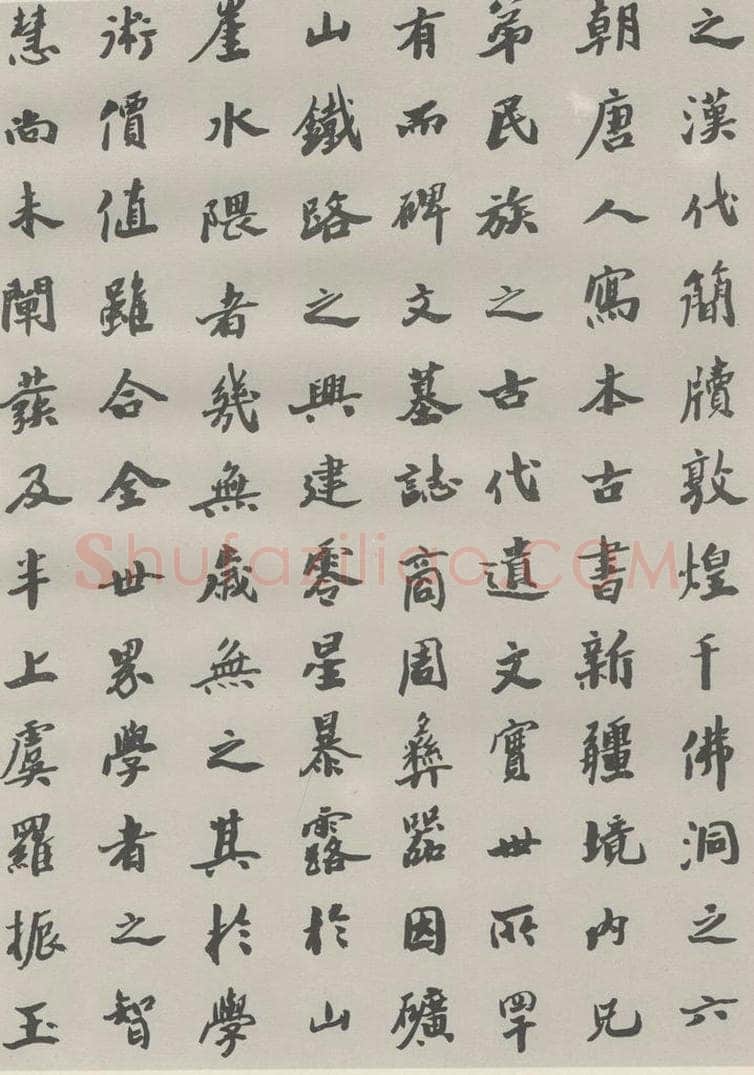 之漢代簡牘敦煌千佛洞之六
朝唐人寫本古書新疆境內兄
苐民族之古代遺文實世所罕
有而碑文墓誌商周彝器因礦
山鐵路之興建零星暴露於山
崖水隈者幾無歲無之其於學
術價值雖合全世界學者之智
慧尚未闡發及半上虞羅振玉
Shufaziliao.COM